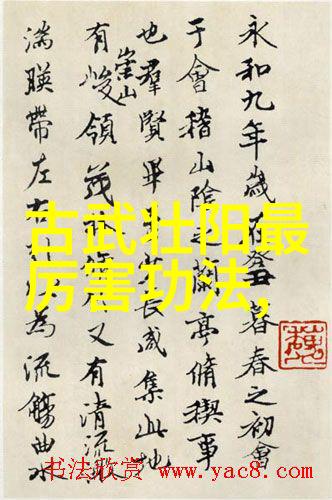 永和九年歲在癸丑暮春之初會
于會稽山陰之蘭亭脩禊事
也羣賢畢至少長咸集此地
有崇山峻領茂林脩竹又有清流激
湍暎帶左右引以為流觴曲水
古武壮阳最
厉害功法,
书法欣赏 www.yac8.com